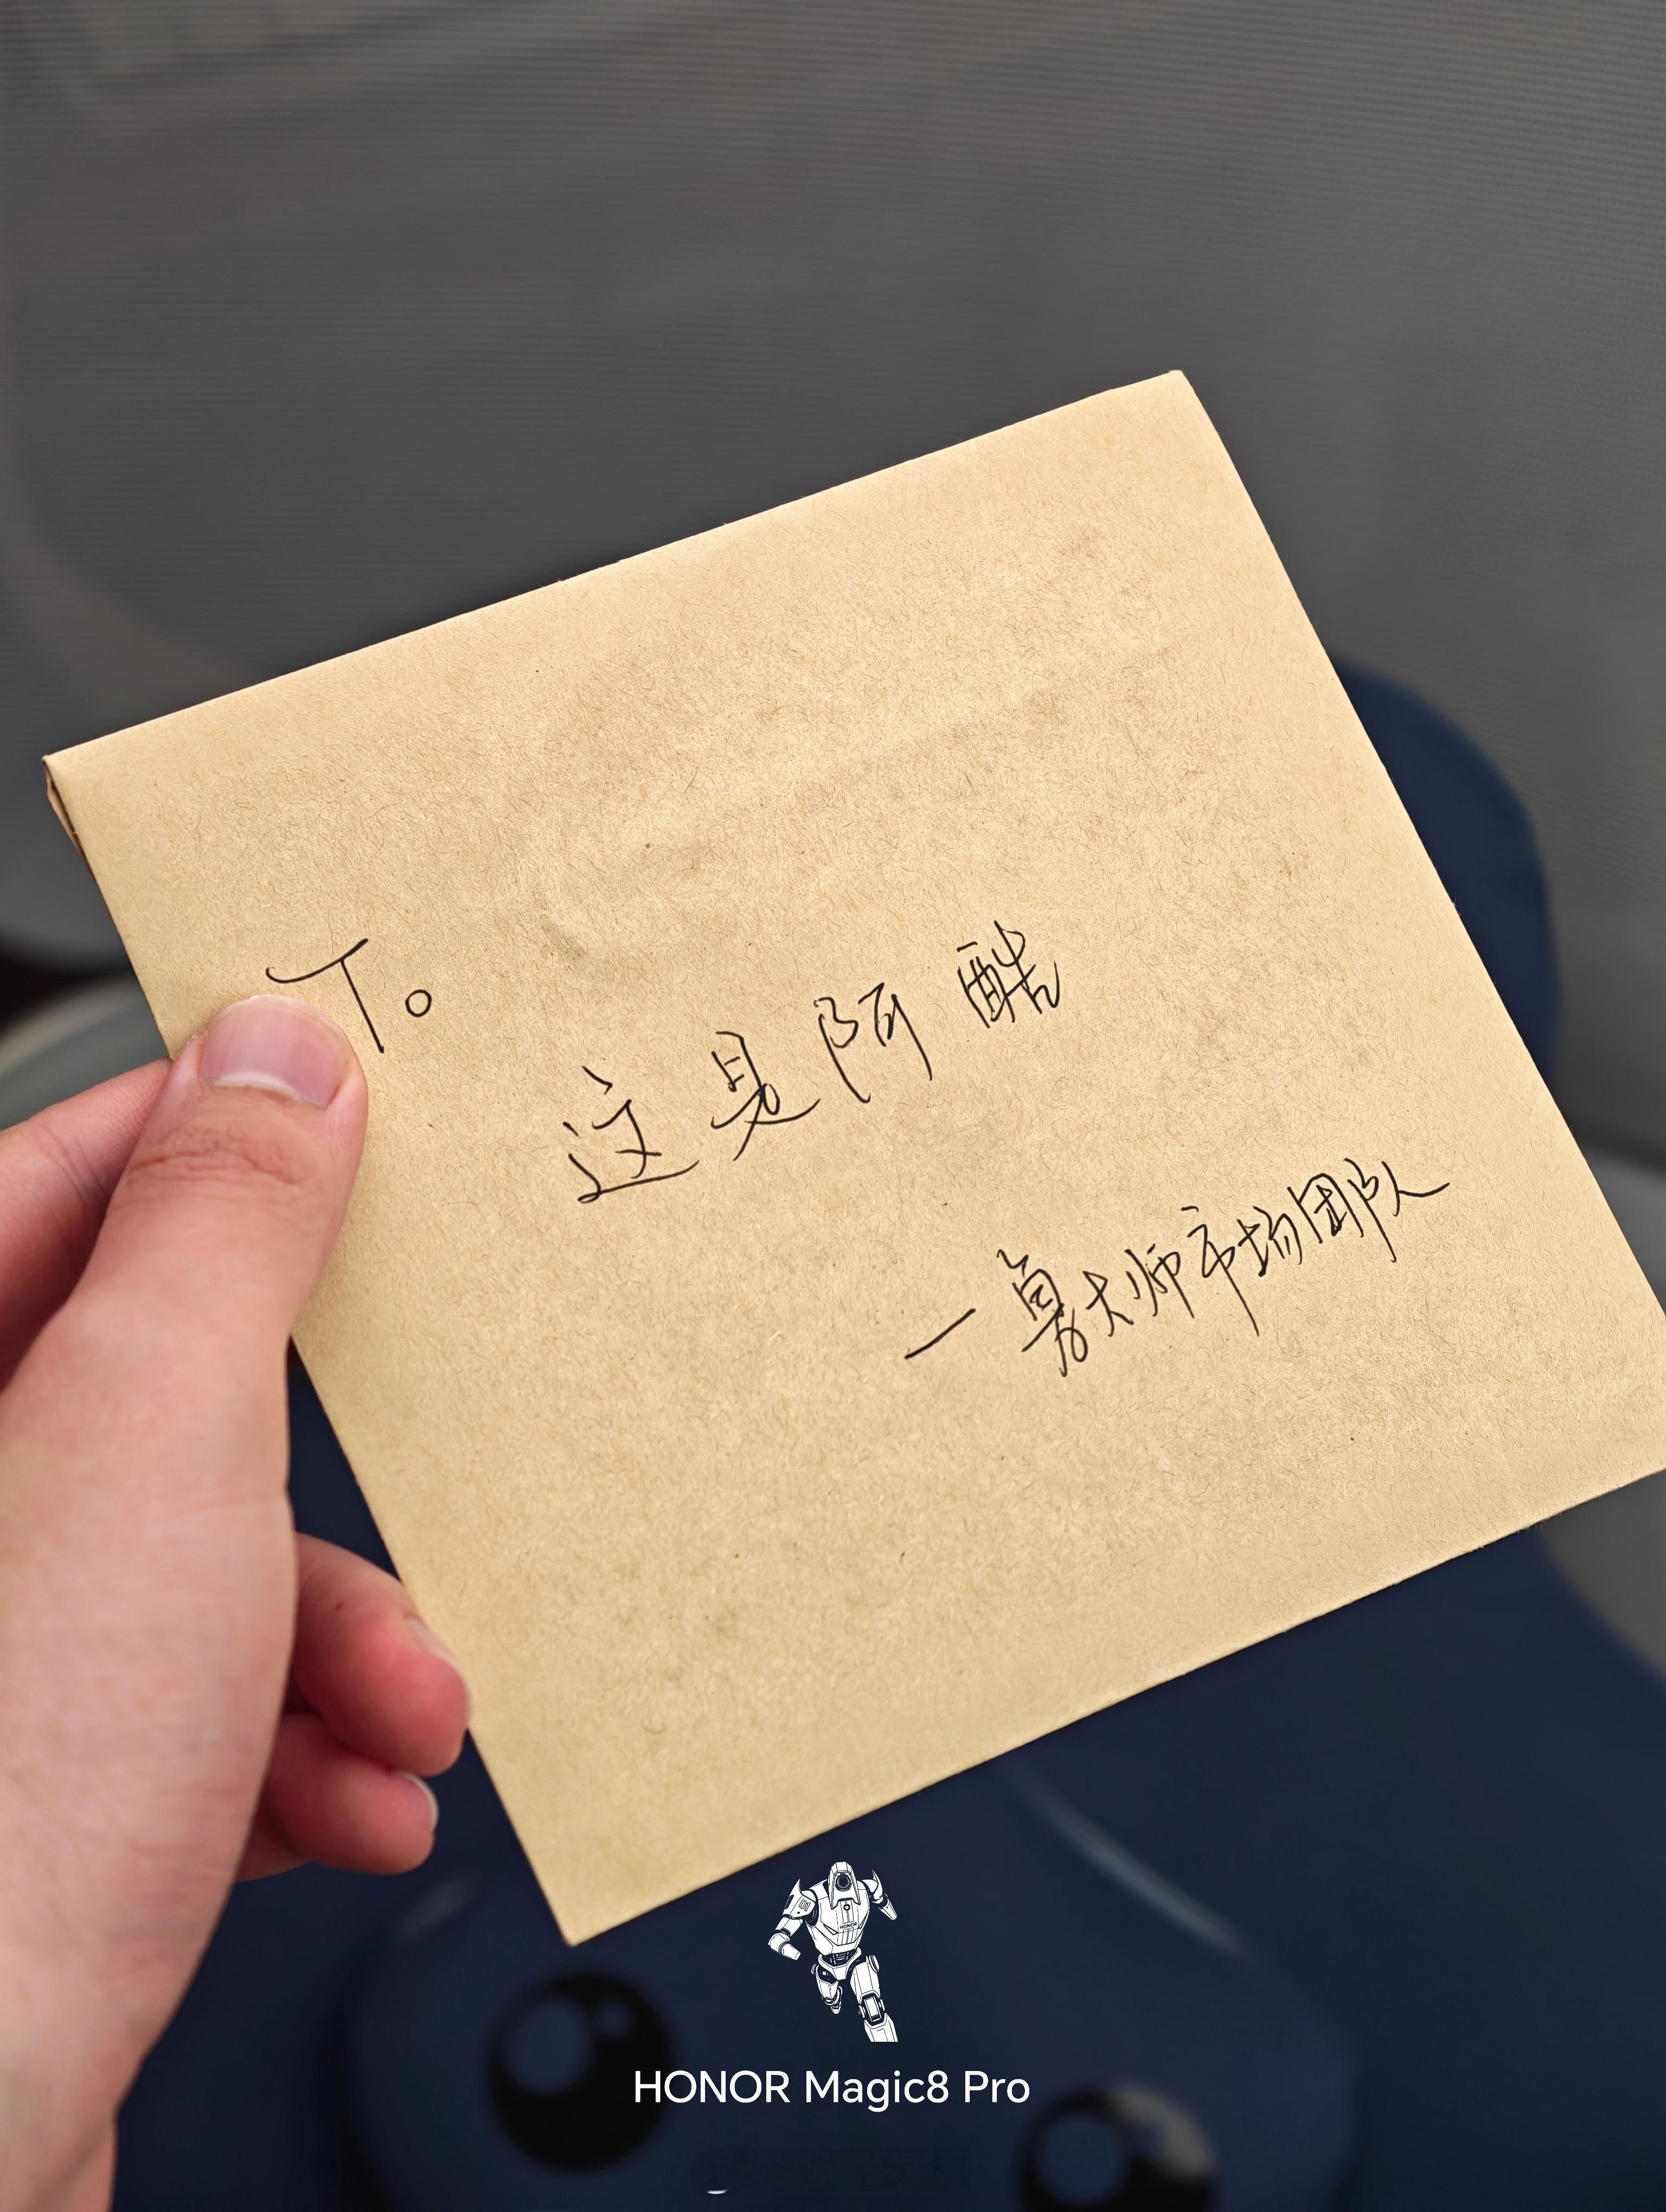 To
这是阿酷
—鲁大师市场团队
HONOR Magic8 Pro